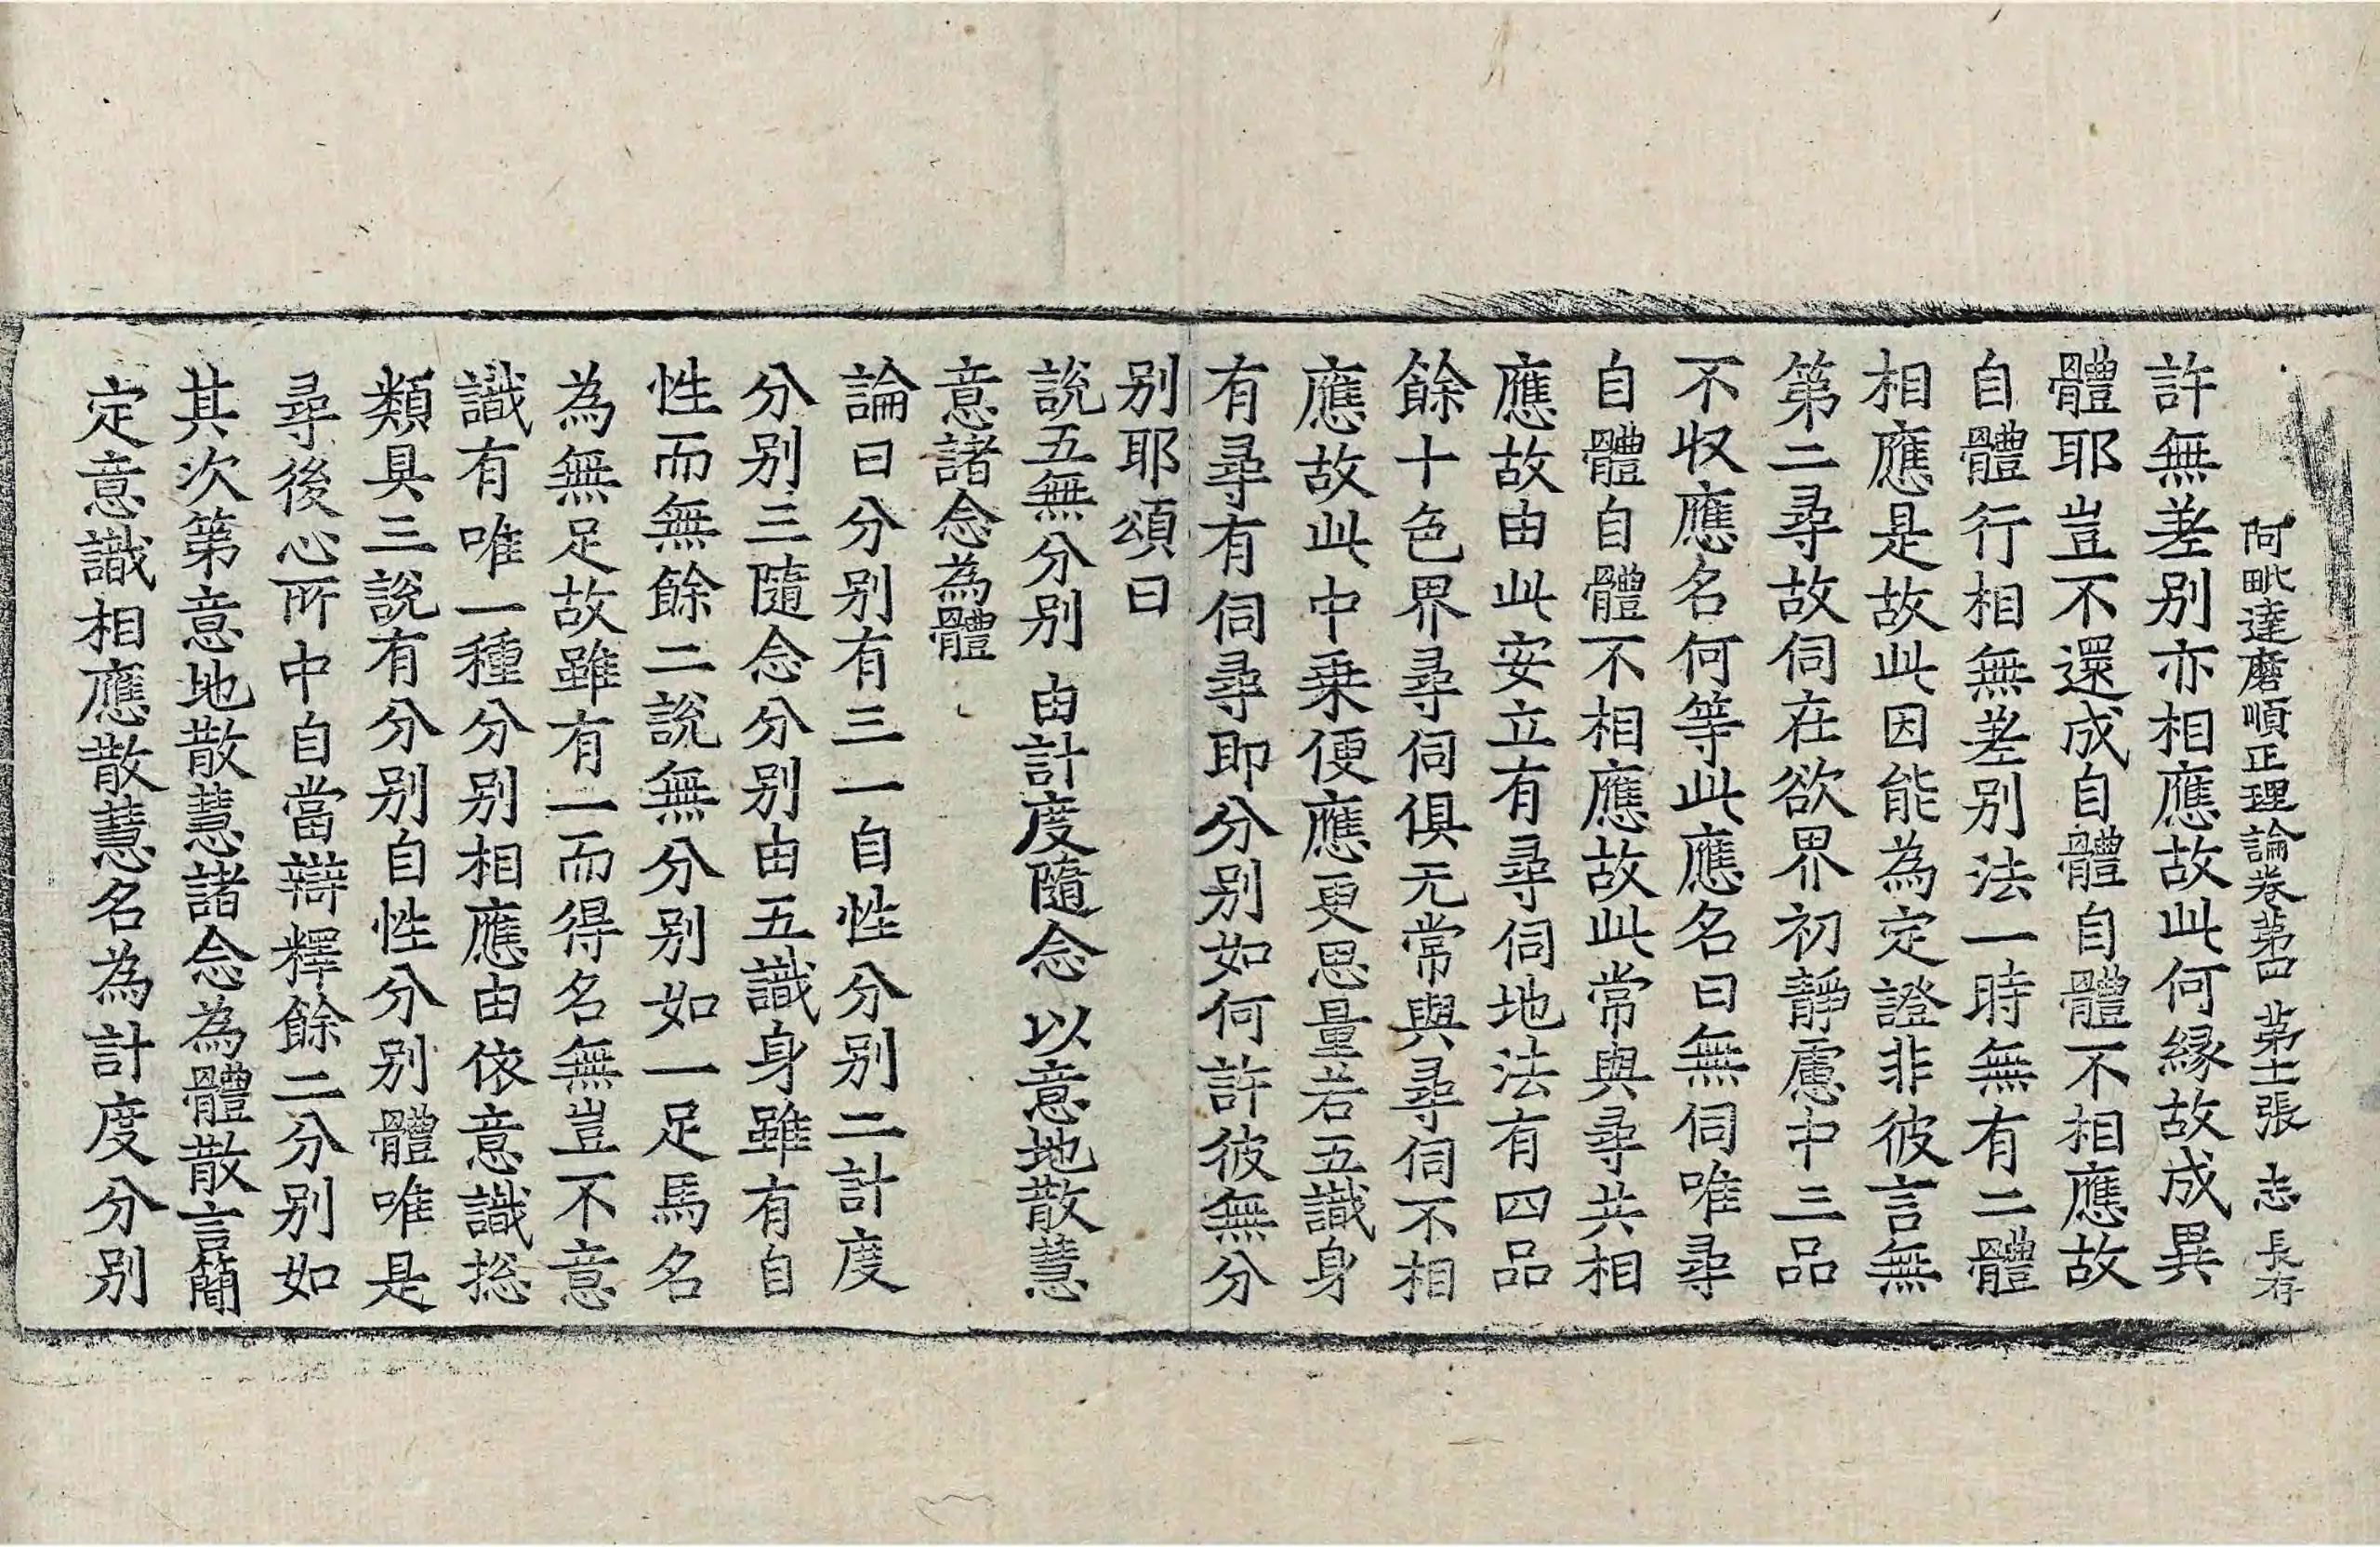 阿毗達磨順正理論卷苐四 苐十二張 志 長存
許無差别亦相應故此何縁故成異
體耶豈不還成自體自體不相應故
自體行相無差别法一時無有二體
相應是故此因能為定證非彼言無
第二尋故伺在欲界初靜慮中三品
不收應名何等此應名曰無伺唯尋
自體自體不相應故此常與尋共相
應故由此安立有尋伺地法有四品
餘十色界尋伺俱无常與尋伺不相
應故此中乗便應更思量若五識身
有尋有伺尋即分别如何許彼無分
别耶頌曰
說五無分别 由計度隨念 以意地散慧
意諸念為體
論曰分别有三一自性分别二計度
分别三隨念分别由五識身雖有自
性而無餘二說無分别如一足馬名
為無足故雖有一而得名無豈不意
識有唯一種分别相應由依意識捴
類具三說有分别自性分别體唯是
尋後心所中自當辯釋餘二分别如
其次第意地散慧諸念為體散言簡
定意識相應散慧名為計度分别